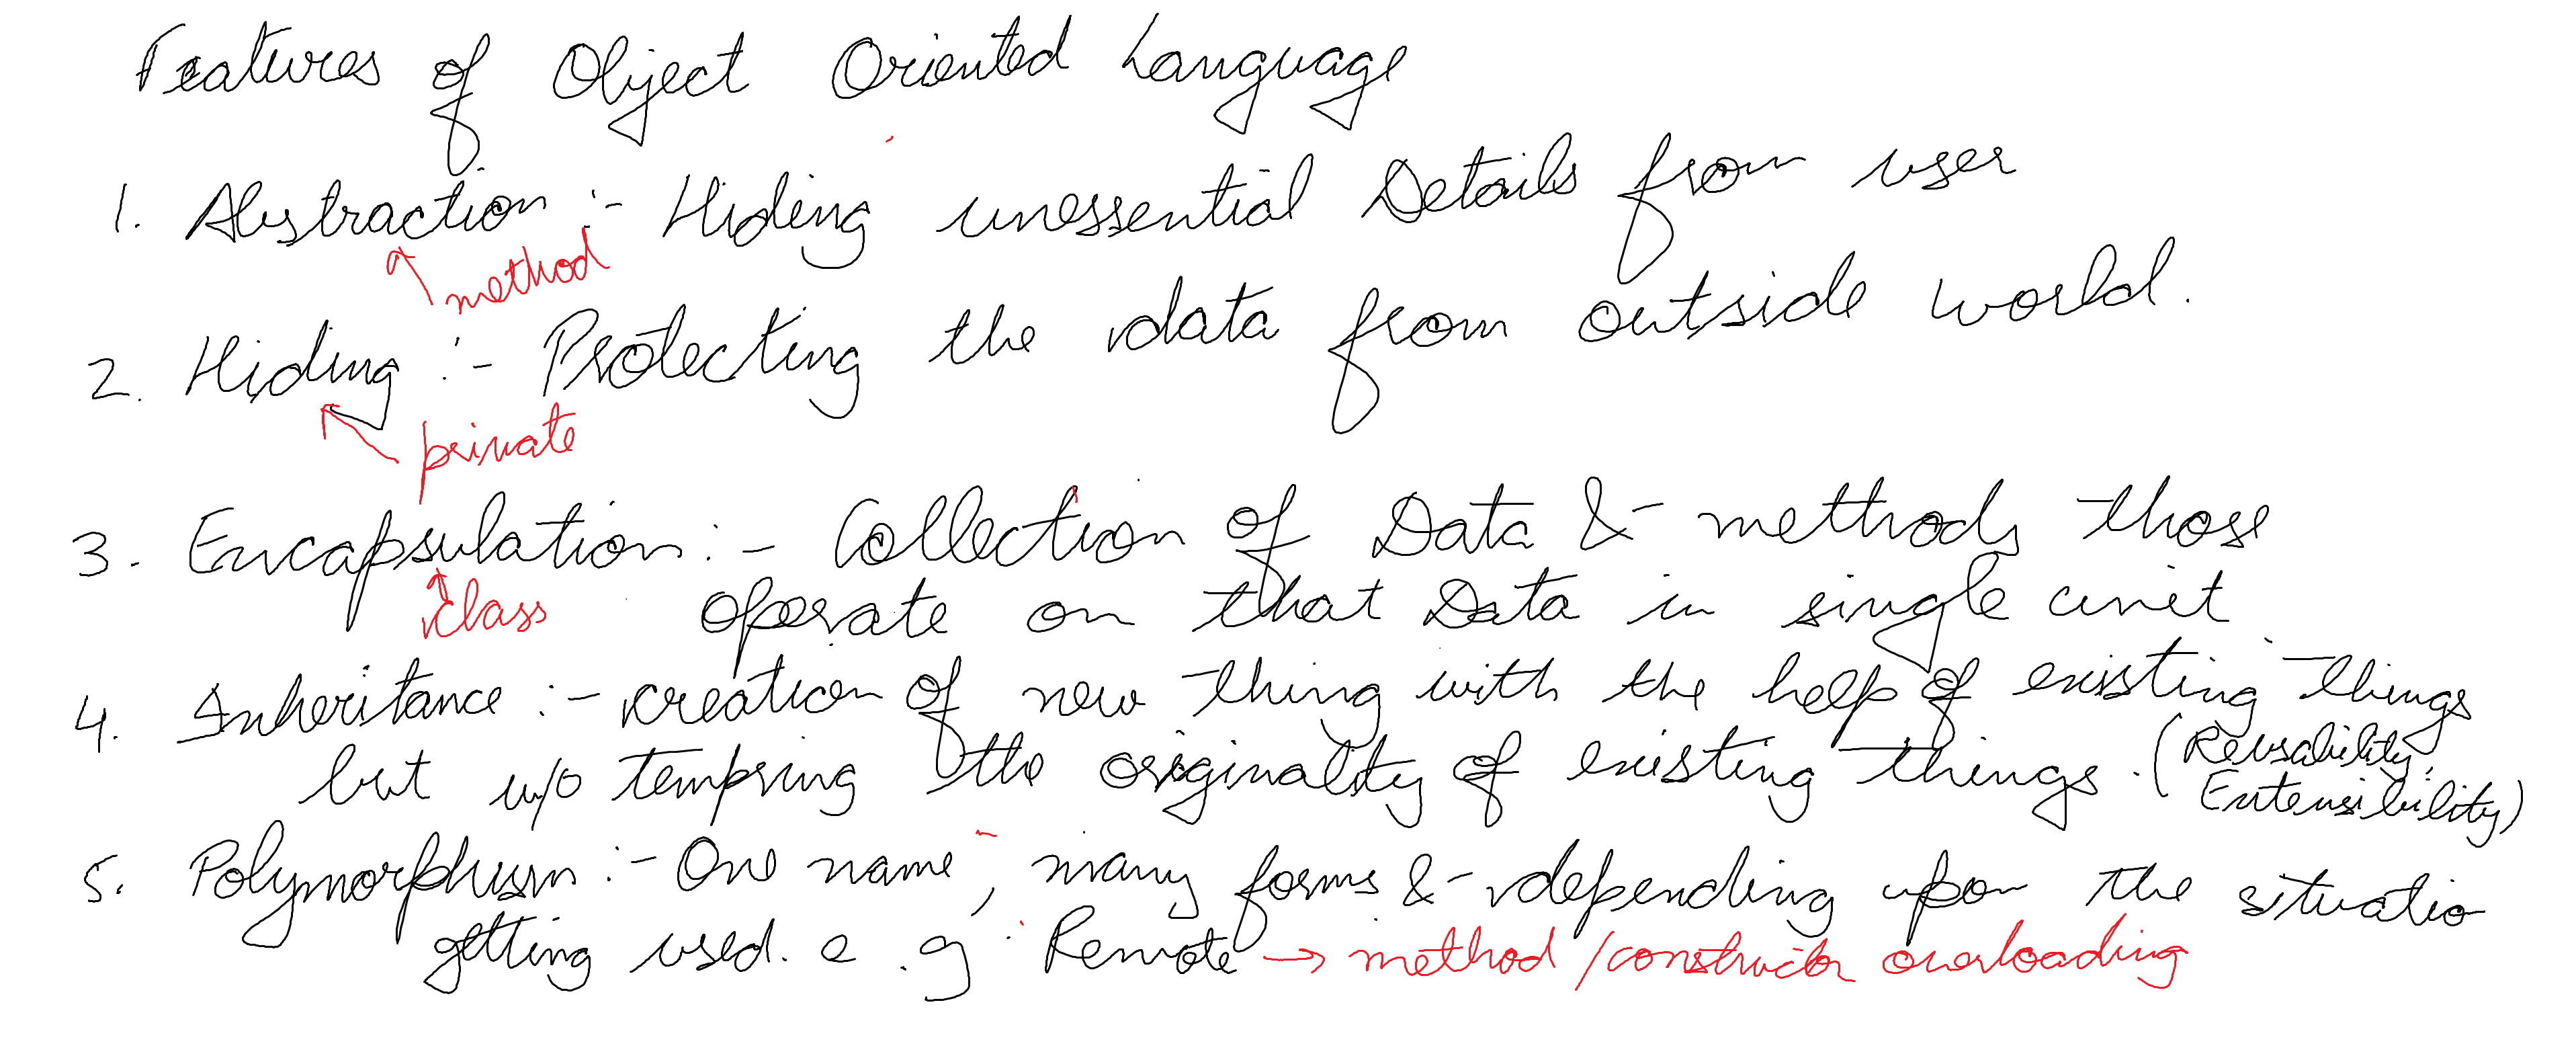 Features of Object Oriented Language
1. Abstraction :- Hiding unessential Details from user
method
2. Hiding :- Protecting the data from outside world.
private
3. Encapsulation :- Collection of Data & methods those
class
operate on that Data in single unit.
4. Inheritance :- creation of new thing with the help of existing things
but w/o tempring the originality of existing things. (Reusability,
Extensibility)
5. Polymorphism :- One name, many forms & depending upon the situatio
getting used. e.g. Remote → method / constructor overloading